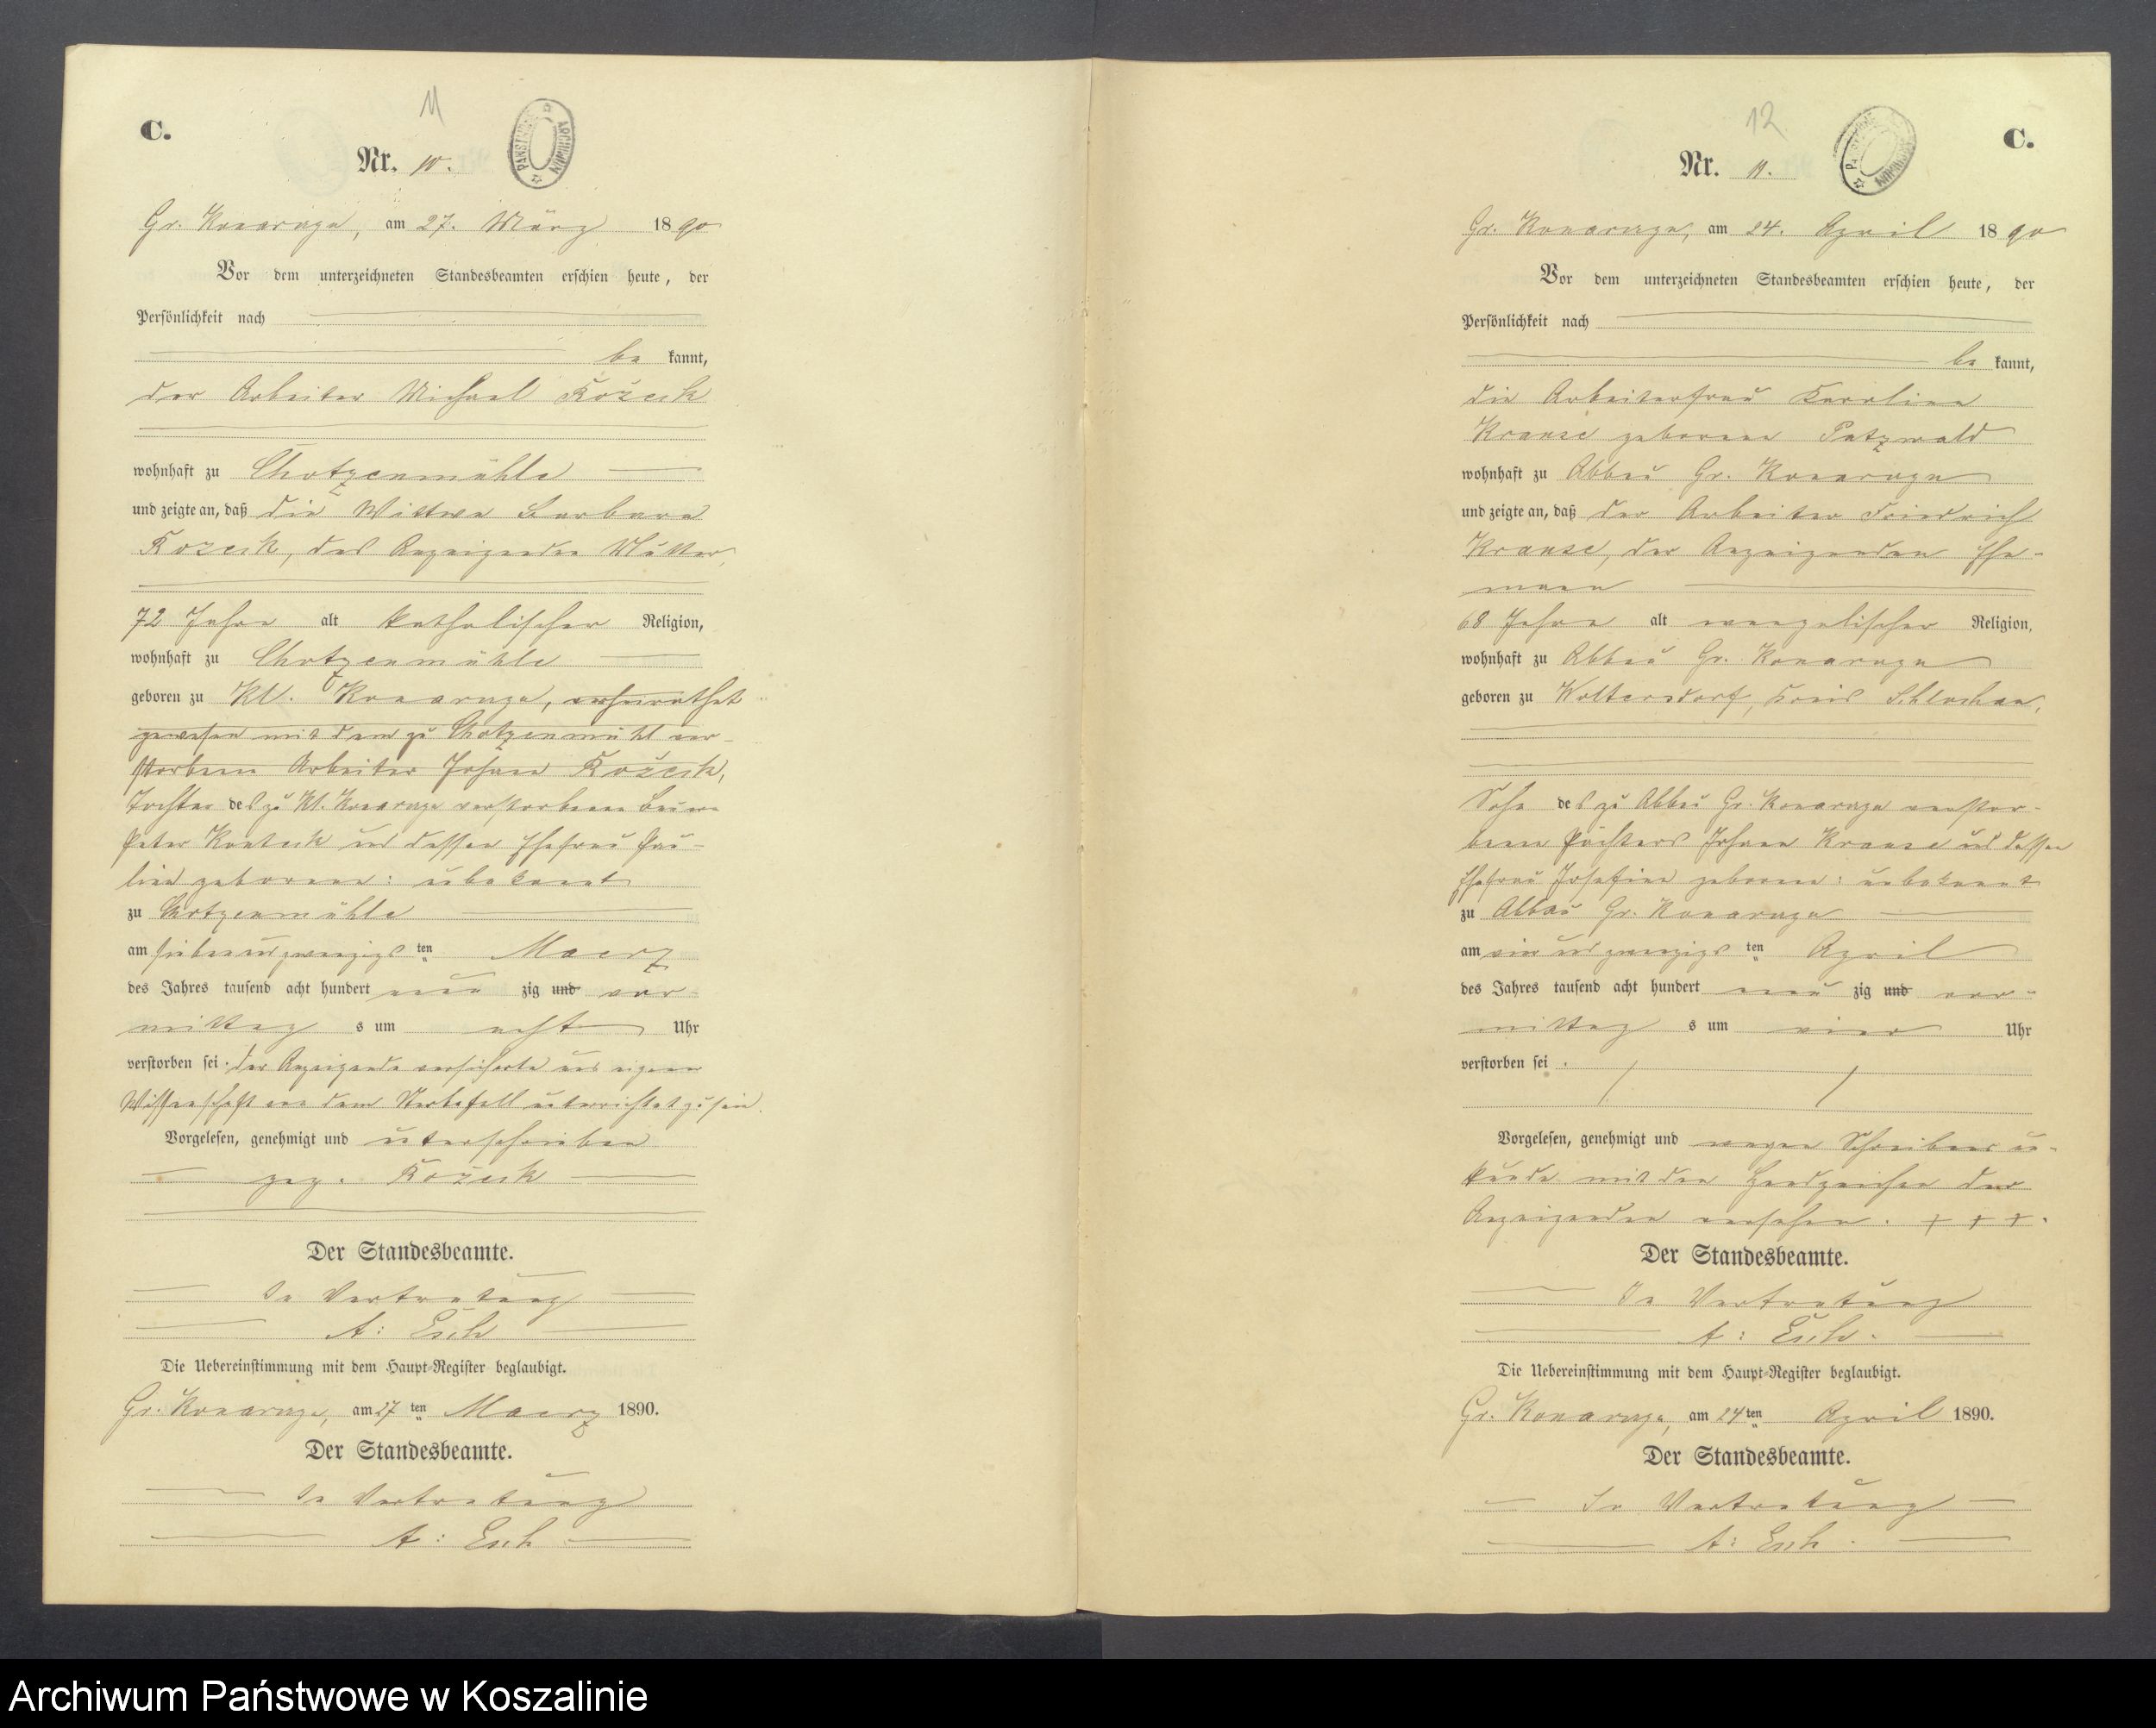 11
C.
Nr. 10.
PAŃSTWOWE ARCHIWUM
Gr. Konarczyn, am 27. März 1890
Vor dem unterzeichneten Standesbeamten erschien heute, der
Persönlichkeit nach
be kannt,
der Arbeiter Michael
wohnhaft zu Chotzenmühle
und zeigte an, daß die Wittwe Barbara
des Anzeigenden Mutter,
72 Jahre alt katholischer Religion,
wohnhaft zu Chotzenmühle
geboren zu Kl. Konarczyn, verheirathet
gewesen mit dem zu Chotzenmühl ver-
storbenen Arbeiter Johann
Tochter des zu Kl. Konarczyn verstorbenen
Peter und dessen Ehefrau Pau-
line geborene: unbekannt
zu Chotzenmühle
am siebenundzwanzigsten März
des Jahres tausend acht hundert neun zig und vor-
mittag s um acht Uhr
verstorben sei. der Anzeigende versicherte aus eigener
Wissenschaft von dem Sterbefall unterrichtet zu sein.
Vorgelesen, genehmigt und unterschrieben
gez.
Der Standesbeamte.
In Vertretung
A: Esch
Die Uebereinstimmung mit dem Haupt-Register beglaubigt.
Gr. Konarczyn, am 27 ten Maerz 1890.
Der Standesbeamte.
In Vertretung
A: Esch
12
C.
Nr. 11.
PAŃSTWOWE ARCHIWUM
Gr. Konarczyn, am 24. April 1890
Vor dem unterzeichneten Standesbeamten erschien heute, der
Persönlichkeit nach
be kannt,
die Arbeiterfrau Karoline
Krause geborene Patzwald
wohnhaft zu Abbau Gr. Konarczyn
und zeigte an, daß der Arbeiter Friedrich
Krause, der Anzeigenden Ehe-
mann
68 Jahre alt evangelischer Religion,
wohnhaft zu Abbau Gr. Konarczyn
geboren zu Woltersdorf, Kreis Schlochau,
Sohn des zu Abbau Gr. Konarczyn verstor-
benen Pächters Johann Krause und dessen
Ehefrau Josefine geborene: unbekannt
zu Abbau Gr. Konarczyn
am vier und zwanzigsten April
des Jahres tausend acht hundert neun zig und vor-
mittag s um vier Uhr
verstorben sei.
Vorgelesen, genehmigt und wegen Schreibens un-
kunde mit den Handzeichen der
Anzeigenden versehen. + + +.
Der Standesbeamte.
In Vertretung
A: Esch.
Die Uebereinstimmung mit dem Haupt-Register beglaubigt.
Gr. Konarczyn, am 24 ten April 1890.
Der Standesbeamte.
In Vertretung
A: Esch.
Archiwum Państwowe w Koszalinie